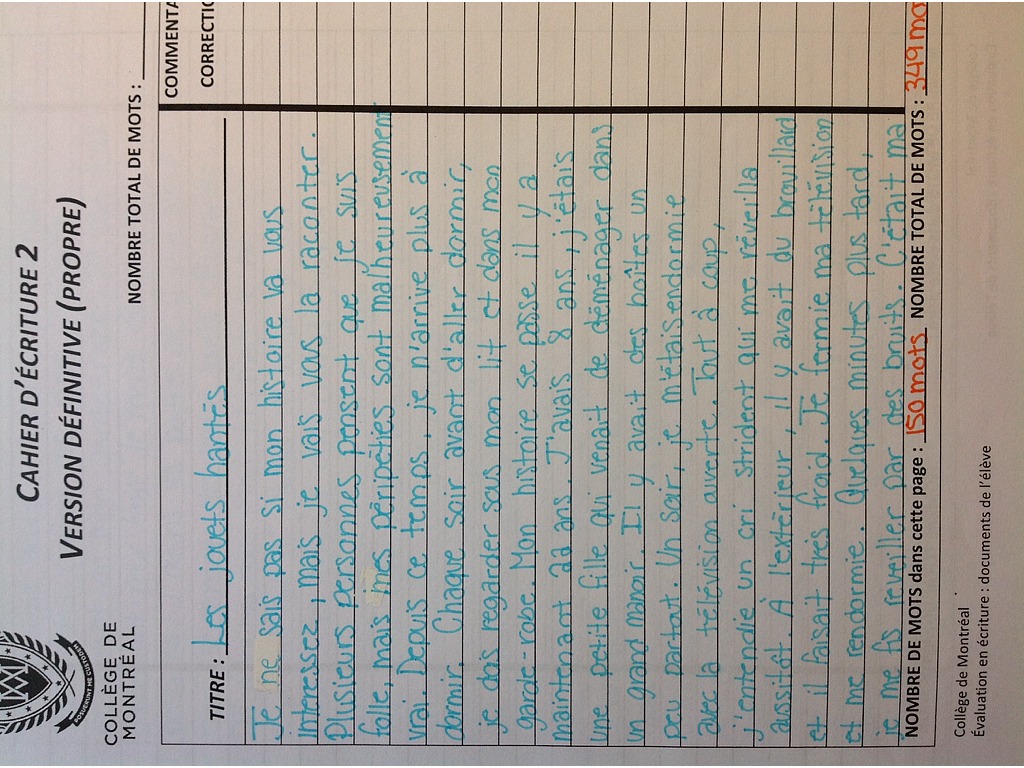 CAHIER D'ÉCRITURE 2
VERSION DÉFINITIVE (PROPRE)
COLLÈGE DE
MONTRÉAL
NOMBRE TOTAL DE MOTS :
TITRE : Les jouets hantés
COMMENTA
CORRECTIO
Je ne sais pas si mon histoire va vous
interressez, mais je vais vous la raconter.
Plusieurs personnes pensent que je suis
folle, mais mes péripéties sont malheureusement
vrai. Depuis ce temps, je n'arrive plus à
dormir. Chaque soir avant d'aller dormir,
je dois regarder sous mon lit et dans mon
garde-robe. Mon histoire se passe il y a
maintenant 22 ans. J'avais 8 ans, j'étais
une petite fille qui venait de déménager dans
un grand manoir. Il y avait des boîtes un
peu partout. Un soir, je m'étais endormie
avec la télévision ouverte. Tout à coup,
j'entendie un cri strident qui me réveilla
aussitôt. À l'extérieur, il y avait du brouillard
et il faisait très froid. Je fermie ma télévision
et me rendormie. Quelques minutes plus tard,
je me fis reveiller par des bruits. C'était ma
NOMBRE DE MOTS dans cette page : 150 mots NOMBRE TOTAL DE MOTS : 349 mo
Collège de Montréal
Évaluation en écriture : documents de l'élève